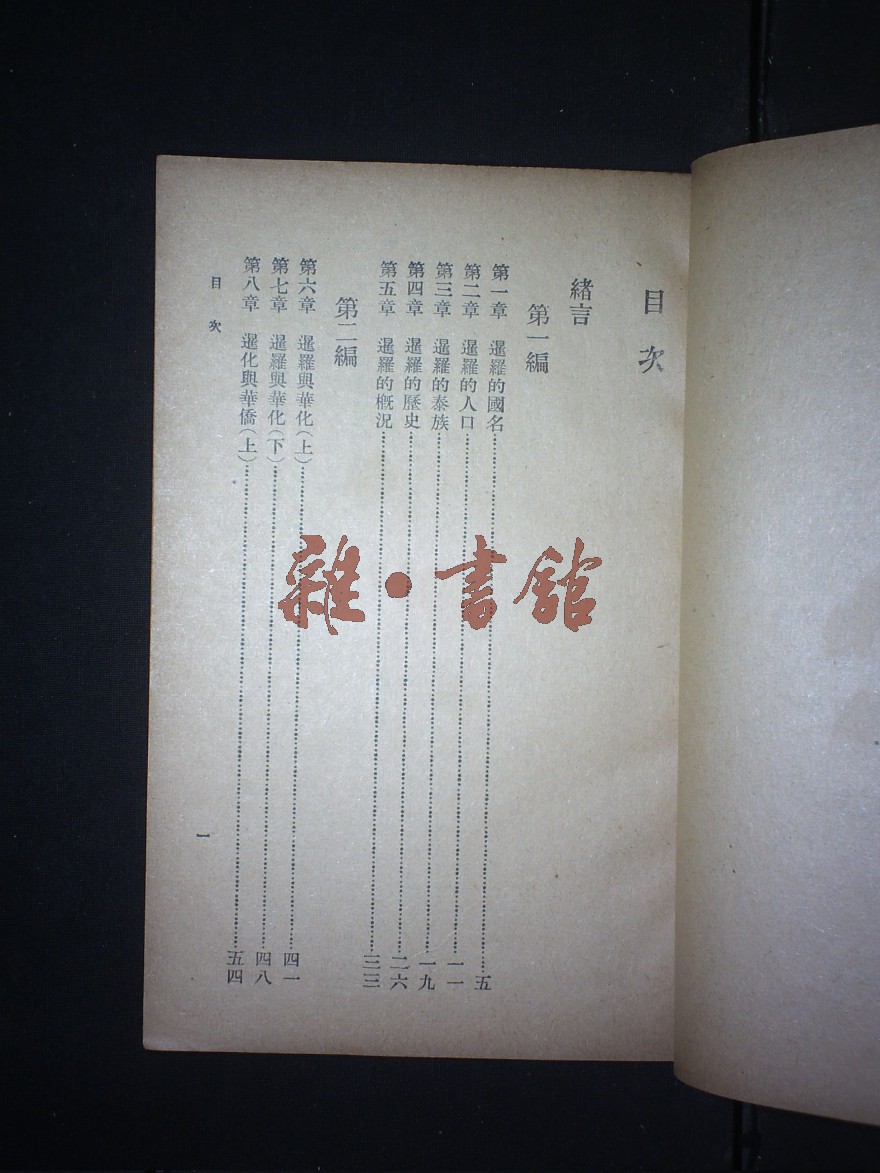 目次
緒言
第一編
第一章 暹羅的國名……五
第二章 暹羅的人口……一一
第三章 暹羅的泰族……一九
第四章 暹羅的歷史……二六
第五章 暹羅的概況……三三
第二編
第六章 暹羅與華化(上)……四一
第七章 暹羅與華化(下)……四八
第八章 暹化與華僑(上)……五四
目次
一
雜·書館